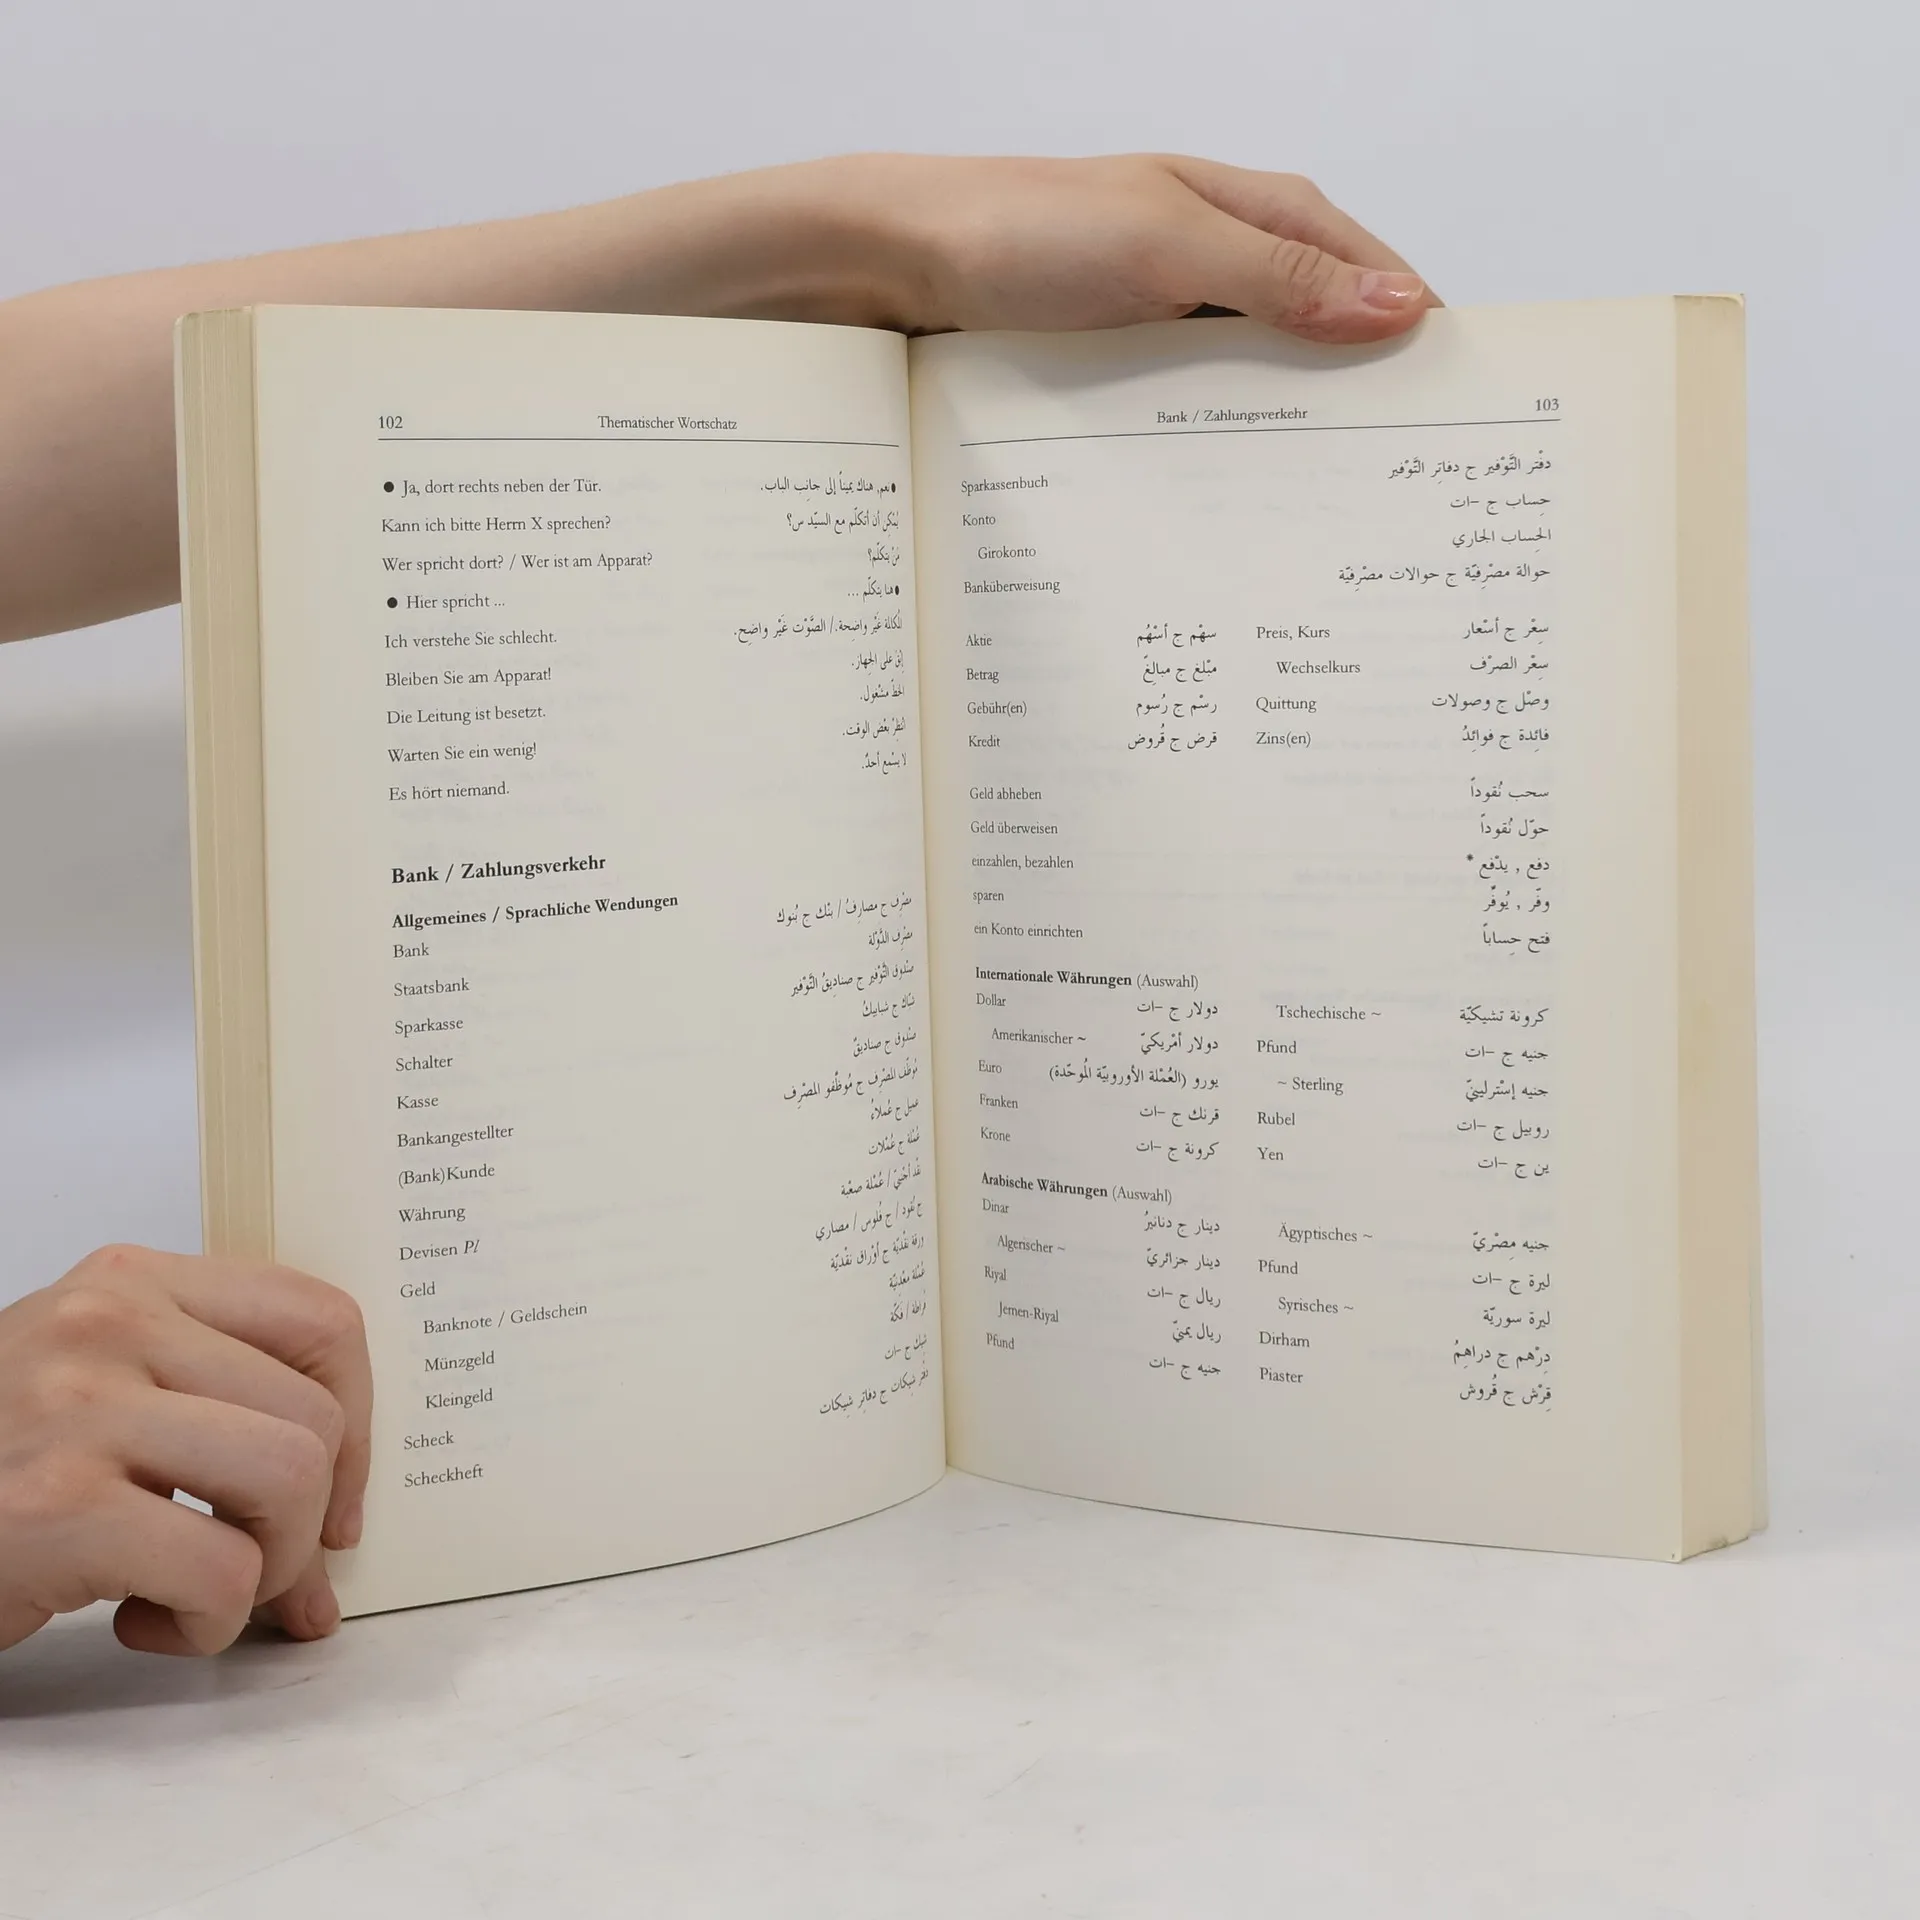 102 Thematischer Wortschatz
● Ja, dort rechts neben der Tür. ●نعم, هناك يميناً إلى جانِب الباب.
Kann ich bitte Herrn X sprechen? يُمْكِن أن أتكلّم مع السيّد س؟
Wer spricht dort? / Wer ist am Apparat? مَنْ يتكلّم؟
● Hier spricht ... ●هنا يتكلّم ...
Ich verstehe Sie schlecht. المُكالمة غَيْر واضِحة./ الصَّوْت غَيْر واضِح.
Bleiben Sie am Apparat! إبْقَ على الجِهاز.
Die Leitung ist besetzt. الخطّ مشْغول.
Warten Sie ein wenig! انْتظِرْ بعْض الوقت.
Es hört niemand. لا يسْمع أحدٌ.
Bank / Zahlungsverkehr
Allgemeines / Sprachliche Wendungen
Bank مصْرِف ج مصارِفُ / بنْك ج بُنوك
Staatsbank مصْرِف الدَّوْلة
Sparkasse صنْدوق التَّوْفير ج صناديقُ التَّوْفير
Schalter شبّاك ج شبابيكُ
Kasse صنْدوق ج صناديقُ
Bankangestellter مُوظّف المصْرِف ج مُوظّفو المصْرِف
(Bank)Kunde عميل ج عُملاءُ
Währung عُمْلة ج عُمْلات
Devisen Pl نقْد أجْنبيّ / عُمْلة صعْبة
Geld ج نُقود / ج فُلوس / مصاري
Banknote / Geldschein ورقة نقْديّة ج أوْراق نقْديّة
Münzgeld عُمْلة معْدِنيّة
Kleingeld فراطة / فكّة
Scheck شيك ج –ات
Scheckheft دفْتر شيكات ج دفاتِر شيكات
Bank / Zahlungsverkehr 103
Sparkassenbuch دفْتر التَّوْفير ج دفاتِر التَّوْفير
Konto حِساب ج –ات
Girokonto الحِساب الجاري
Banküberweisung حوالة مصْرِفيّة ج حوالات مصْرِفيّة
Aktie سهْم ج أسْهُم Preis, Kurs سِعْر ج أسْعار
Betrag مبْلغ ج مبالِغُ Wechselkurs سِعْر الصرْف
Gebühr(en) رسْم ج رُسوم Quittung وصْل ج وصولات
Kredit قرض ج قُروض Zins(en) فائِدة ج فوائِدُ
Geld abheben سحب نُقوداً
Geld überweisen حوّل نُقوداً
einzahlen, bezahlen دفع , يدْفع *
sparen وفّر , يُوفِّر
ein Konto einrichten فتح حِساباً
Internationale Währungen (Auswahl)
Dollar دولار ج –ات Tschechische ~ كرونة تشيكيّة
Amerikanischer ~ دولار أمْريكيّ Pfund جنيه ج –ات
Euro يورو (العُمْلة الأوروبيّة المُوحّدة) ~ Sterling جنيه إسْترلينيّ
Franken فرنك ج –ات Rubel روبيل ج –ات
Krone كرونة ج –ات Yen ين ج –ات
Arabische Währungen (Auswahl)
Dinar دينار ج دنانيرُ Ägyptisches ~ جنيه مِصْريّ
Algerischer ~ دينار جزائريّ Pfund ليرة ج –ات
Riyal ريال ج –ات Syrisches ~ ليرة سوريّة
Jemen-Riyal ريال يمنيّ Dirham دِرْهم ج دراهِمُ
Pfund جنيه ج –ات Piaster قِرْش ج قُروش